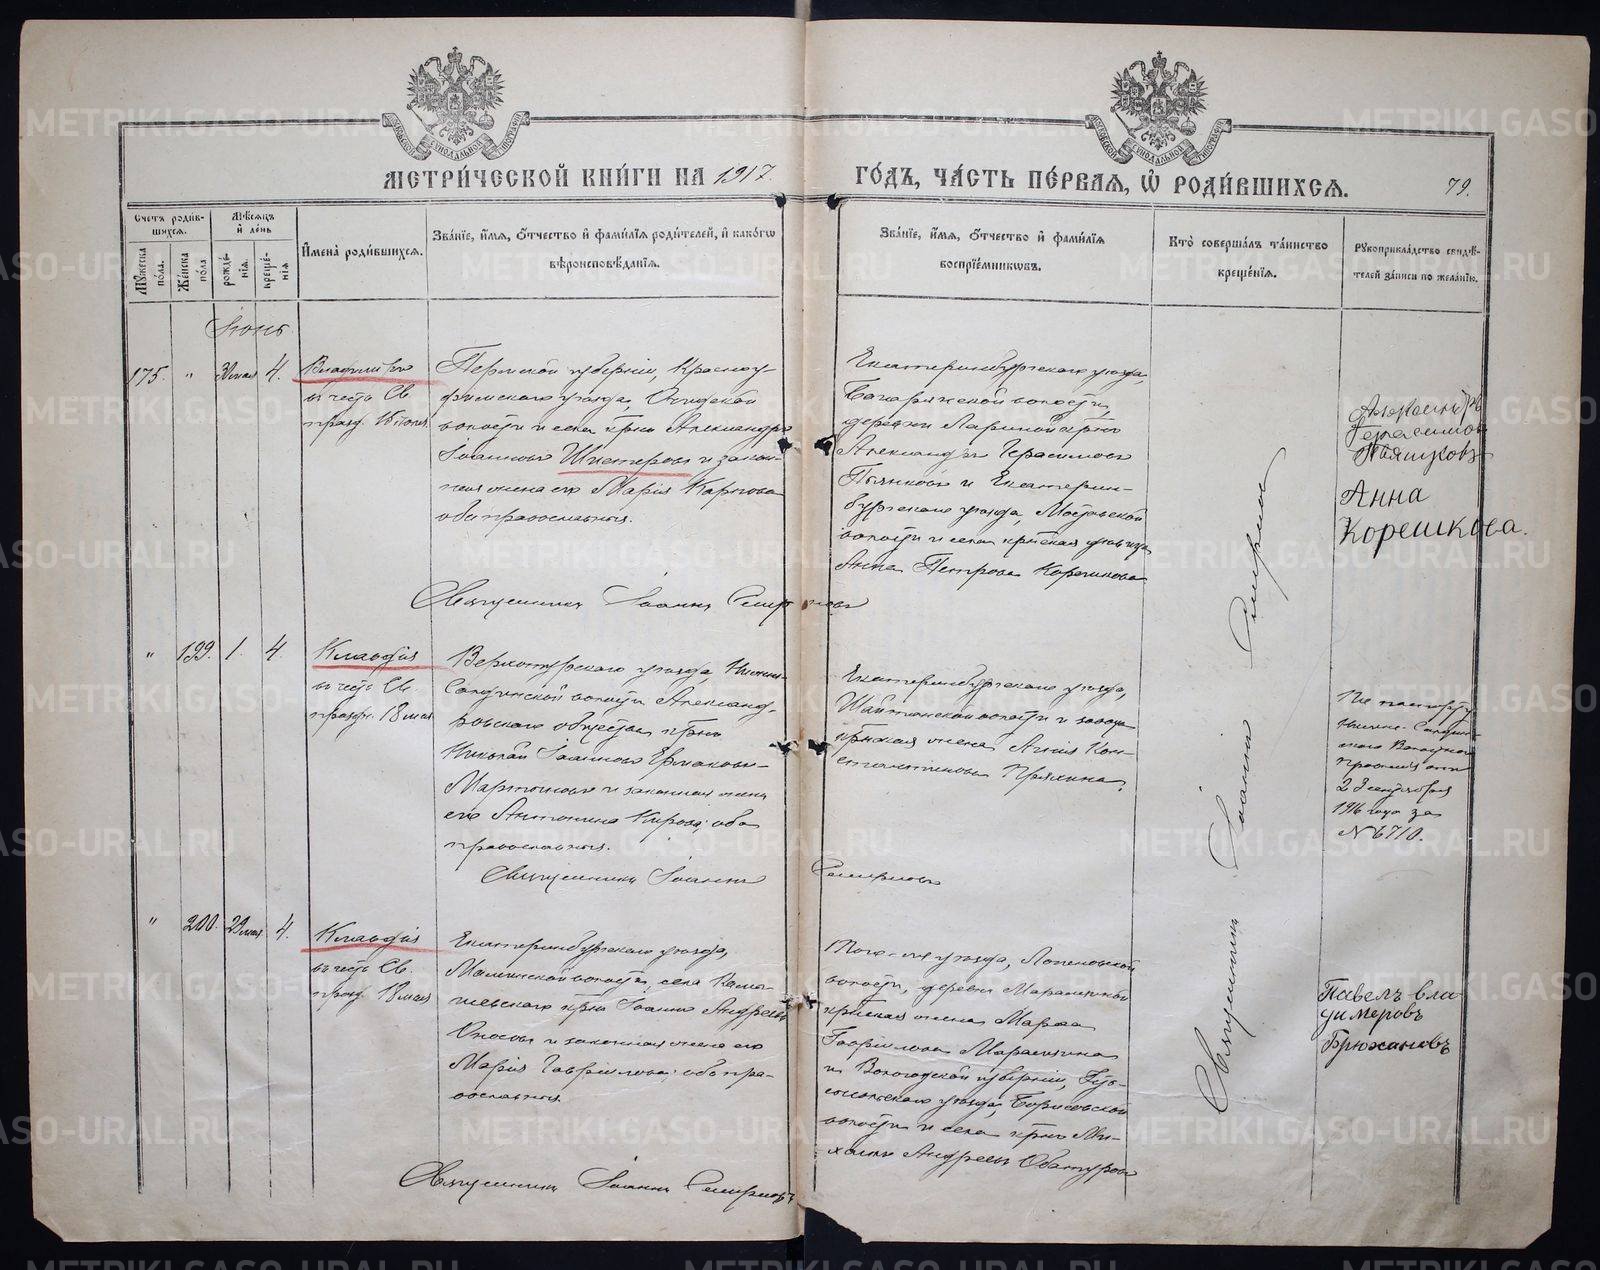 МЕТРИ́ЧЕСКОЙ КНИ́ГИ НА 1917.
ГО́ДЪ, ЧА́СТЬ ПЕ́РВАЯ, Ѡ РОДИ́ВШИХСЯ.
79.
Счетъ роди́вшихся.
Му́жеска по́ла.
Же́нска по́ла.
Мѣ́сяцъ и де́нь
рожде́нія.
креще́нія
И́мена роди́вшихся.
Зва́нїе, и́мя, о́тчество и фами́лїя роди́телей, и како́гѡ
вѣроисповѣ́данїя.
Зва́нїе, и́мя, о́тчество и фами́лїя
воспрїе́мникѡвъ.
Кто̀ соверша́лъ та́инство
креще́нїя.
Рукоприкла́дство свидѣ́-
телей за́писи по жела́нїю.
Іюнь
175.
"
30 мая
4.
Владиміръ
въ честь Св.
празд. 15 іюля
Пермской губерніи, Красноу-
фимскаго уѣзда,
волости и села кр-нъ Александръ
Іоанновъ и закон-
ная жена его Марія Карпова
оба православные.
Екатеринбургскаго уѣзда,
Багарякской волости,
деревни кр-нъ
Александръ Герасимовъ
и Екатерин-
бургскаго уѣзда, Мостовской
волости и села крестьянская дѣвица
Анна Петрова Корешкова
Александръ
Герасимовъ
Анна
Корешкова.
Священникъ Іоаннъ Смирновъ
"
199.
1.
4.
Клавдія
въ честь Св.
праздн. 18 мая
Верхотурскаго уѣзда, Нижне-
Салдинской волости Александ-
ровскаго общества кр-нъ
Николай Іоанновъ Ермаковъ-
Мартыновъ и законная жена
его Антонина Кирова; оба
православные.
Екатеринбургскаго уѣзда,
Шайтанской волости и завода
крестьянская жена Кон-
стантинова Пряхина.
По паспорту
Нижне-Салдин-
скаго Волостного
правленія отъ
23 сентября
1916 года за
№ 6710.
Священникъ Іоаннъ Смирновъ
"
200.
29 мая
4.
Клавдія
въ честь Св.
празд. 18 мая
Екатеринбургскаго уѣзда,
волости, села Камы-
шевскаго кр-нъ Іоаннъ Андреевъ
и законная жена его
Марія Гавріилова; оба пра-
вославные.
Того-же уѣзда,
волости, деревни
крестьянская жена Марѳа
Гавріилова
и Вологодской губерніи,
уѣзда, Борисовской
волости и села кр-нъ Ми-
хаилъ Андреевъ
Павелъ вла
димеровъ
Брюхановъ
Священникъ Іоаннъ Смирновъ
Священникъ Іоаннъ Смирновъ
METRIKI.GASO-URAL.RU